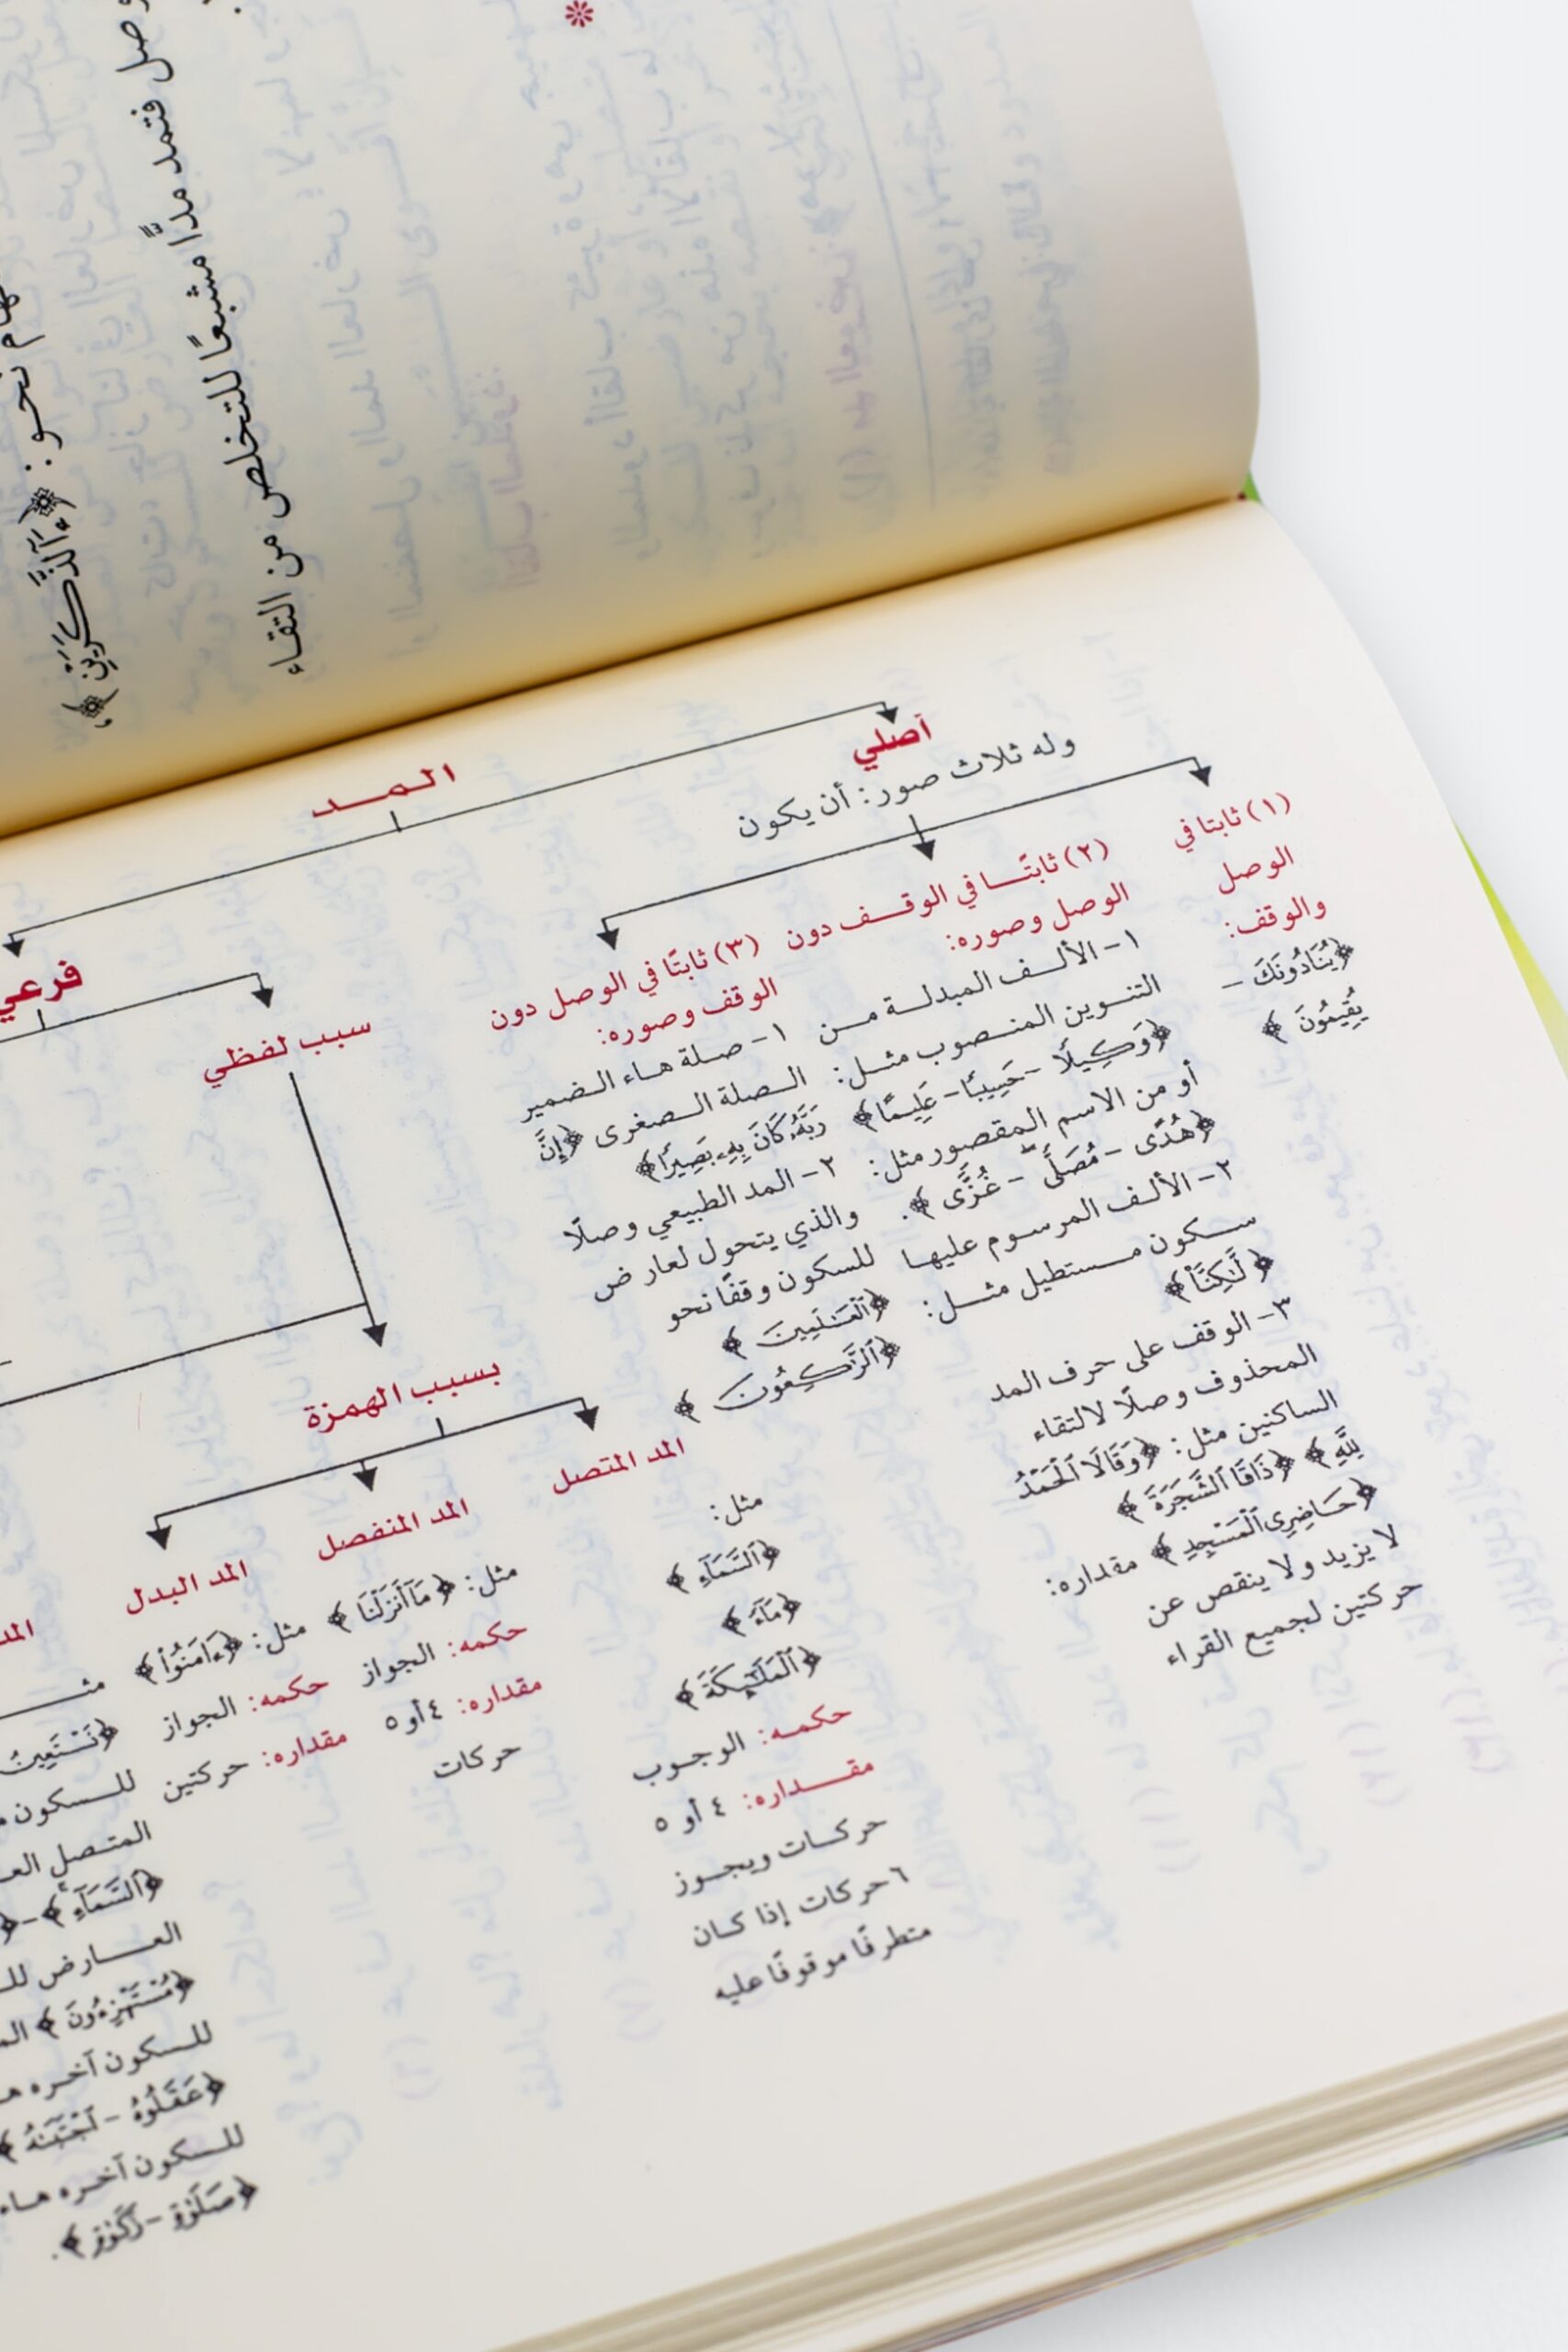 وصل فتمد مدًّا مشبعًا للتخلص من التقاء
نحو: ﴿ءَآلذَّكَرَيْنِ﴾،
المد
أصلي
وله ثلاث صور: أن يكون
(١) ثابتا في
الوصل
والوقف:
﴿يُنَادُونَكَ -
يُقِيمُونَ﴾
(٢) ثابتًا في الوقف دون
الوصل وصوره:
١- الألف المبدلة من
التنوين المنصوب مثل:
﴿وَكِيلًا - حَسِيبًا - عَلِيمًا﴾
أو من الاسم المقصور مثل:
﴿هُدًى - مُصَلًّى - غُزًّى﴾.
٢- الألف المرسوم عليها
سكون مستطيل مثل:
﴿لَّٰكِنَّا۠﴾
٣- الوقف على حرف المد
المحذوف وصلًا لالتقاء
الساكنين مثل: ﴿وَقَالَا ٱلْحَمْدُ
لِلَّهِ﴾ ﴿ذَاقَا ٱلشَّجَرَةَ﴾
﴿حَاضِرِى ٱلْمَسْجِدِ﴾ مقداره:
لا يزيد ولا ينقص عن
حركتين لجميع القراء
(٣) ثابتًا في الوصل دون
الوقف وصوره:
١- صلة هاء الضمير
الصلة الصغرى ﴿إِنَّ
رَبَّهُۥ كَانَ بِهِۦ بَصِيرًا﴾
٢- المد الطبيعي وصلًا
والذي يتحول لعارض
للسكون وقفًا نحو
﴿ٱلْعَٰلَمِينَ﴾
﴿ٱلرَّٰكِعُونَ﴾
فرعي
سبب لفظي
بسبب الهمزة
المد المتصل
مثل:
﴿ٱلسَّمَآءِ﴾
﴿مَآءً﴾
﴿ٱلْمَلَٰٓئِكَةَ﴾
حكمه: الوجوب
مقداره: ٤ أو ٥
حركات ويجوز
٦ حركات إذا كان
متطرفًا موقوفًا عليه
المد المنفصل
مثل: ﴿مَآ أَنزَلْنَا﴾
حكمه: الجواز
مقداره: ٤ أو ٥
حركات
المد البدل
مثل: ﴿ءَامَنُوا۟﴾
حكمه: الجواز
مقداره: حركتين
﴿نَسْتَعِينُ
للسكون
المتصل
﴿ٱلسَّمَآءِ﴾ -
العارض
﴿مُسْتَهْزِءُونَ﴾
للسكون آخره
﴿عَقَلُوهُ - ٱجْتَبَىٰهُ﴾
للسكون آخره هاء
﴿صَلَوٰة - زَكَوٰة﴾.